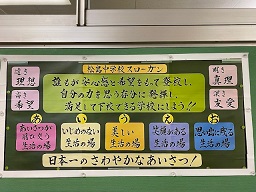 松高中学校スローガン
高き
理想
高き
希望
誰もが安心感と希望をもって登校し、
自分の力を思う存分に発揮し、
満足して下校できる学校にしよう!!
真理
深き
友愛
あ
い
う
え
お
あいさつが
飛び交う
生活の場
いじめのない
生活の場
美しい
生活の場
笑顔がある
生活の場
思い出に残る
生活の場
日本一のさわやかなあいさつ!